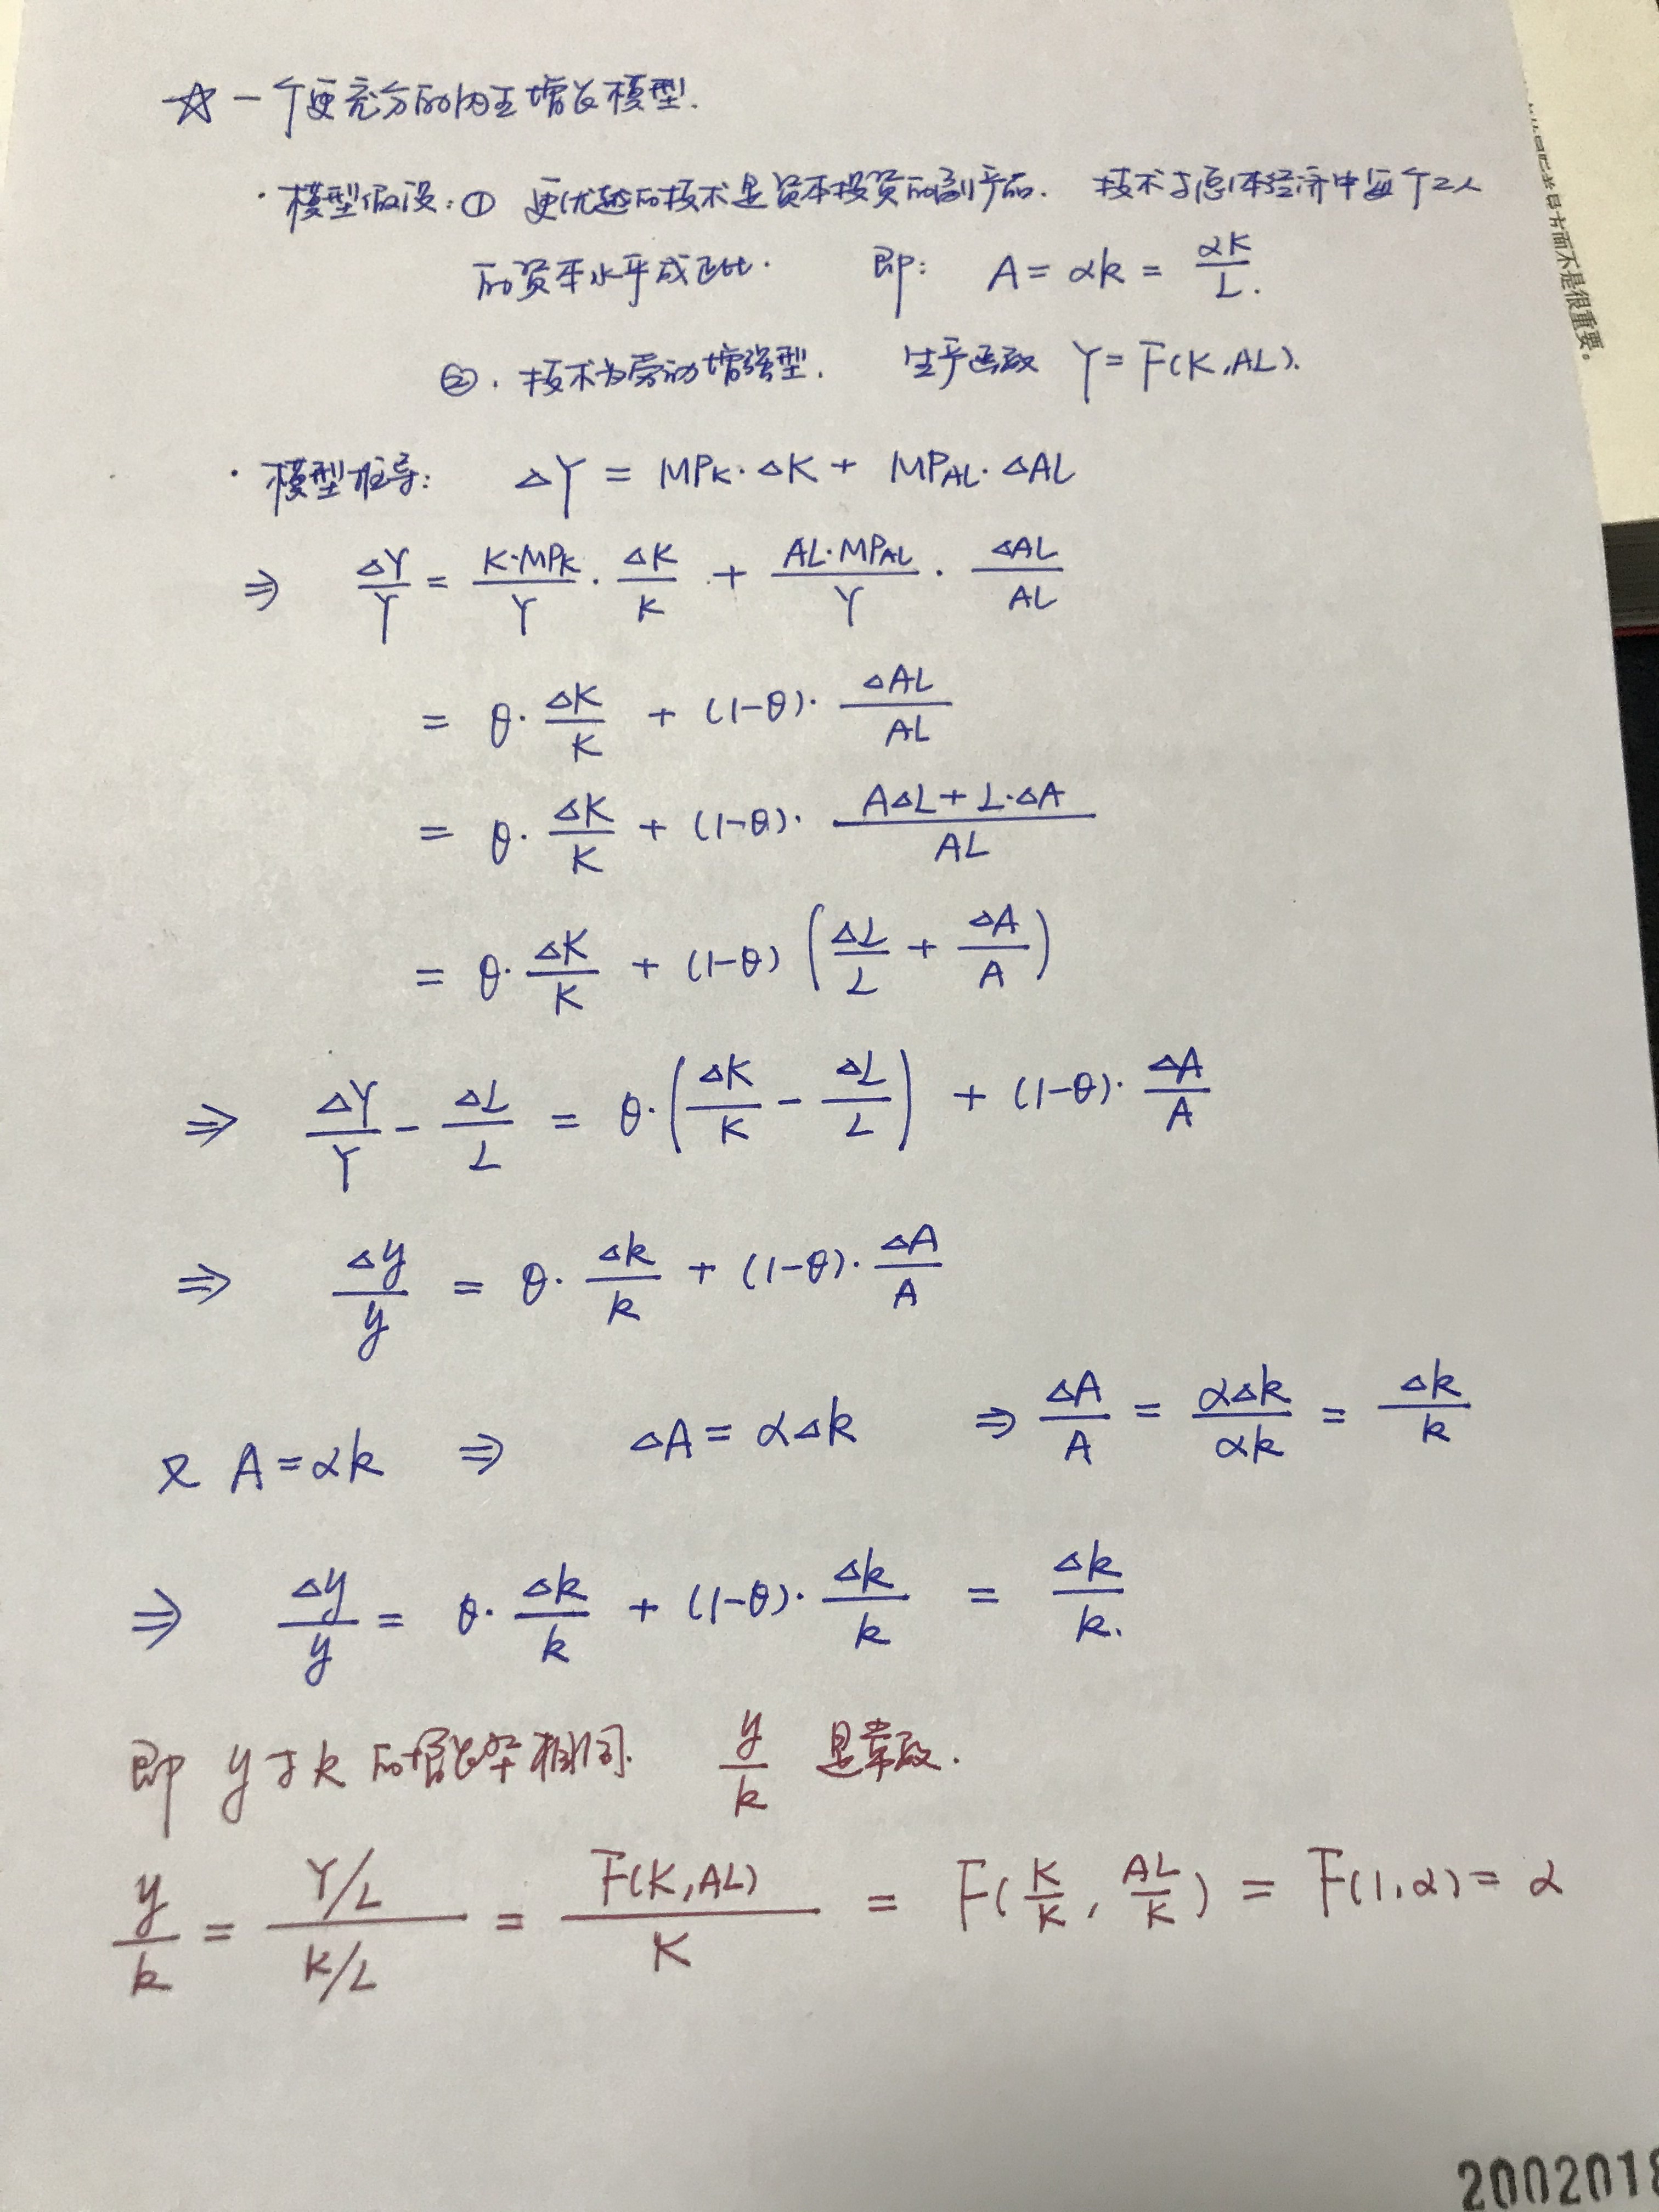 ☆ 一个更充分的内生增长模型.
· 模型假设: ① 更优越的技术是资本投资的副产品. 技术与总体经济中每个工人
的资本水平成正比. 即: A = αk = αK/L.
②. 技术为劳动增强型. 生产函数 Y = F(K, AL).
· 模型推导: ΔY = MPK·ΔK + MPAL·ΔAL
⇒ ΔY/Y = K·MPK/Y · ΔK/K + AL·MPAL/Y · ΔAL/AL
= θ·ΔK/K + (1-θ)·ΔAL/AL
= θ·ΔK/K + (1-θ)·(AΔL + L·ΔA)/AL
= θ·ΔK/K + (1-θ)(ΔL/L + ΔA/A)
⇒ ΔY/Y - ΔL/L = θ·(ΔK/K - ΔL/L) + (1-θ)·ΔA/A
⇒ Δy/y = θ·Δk/k + (1-θ)·ΔA/A
又 A = αk ⇒ ΔA = αΔk ⇒ ΔA/A = αΔk/αk = Δk/k
⇒ Δy/y = θ·Δk/k + (1-θ)·Δk/k = Δk/k.
即 y与k的增长率相同. y/k 是常数.
y/k = (Y/L)/(K/L) = F(K,AL)/K = F(K/K, AL/K) = F(1,α) = α
面不是很重要。
2002018